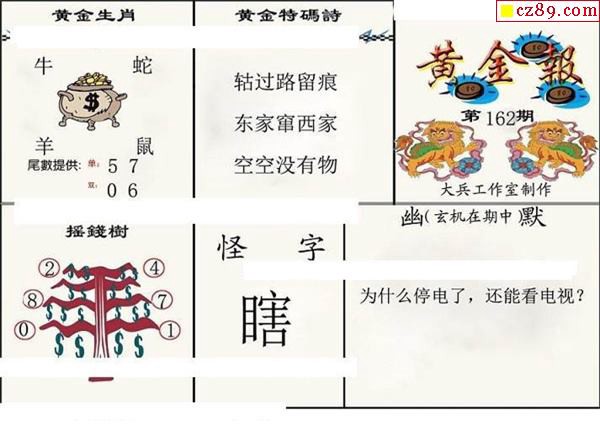 黄金生肖
牛 蛇
羊 鼠
尾數提供: 单: 5 7
双: 0 6
黄金特碼詩
轱过路留痕
东家窜西家
空空没有物
cz89.com
黄金報
第162期
大兵工作室制作
摇錢樹
2 4
8 7
0 1
怪 字
瞎
幽(玄机在期中)默
为什么停电了，还能看电视？